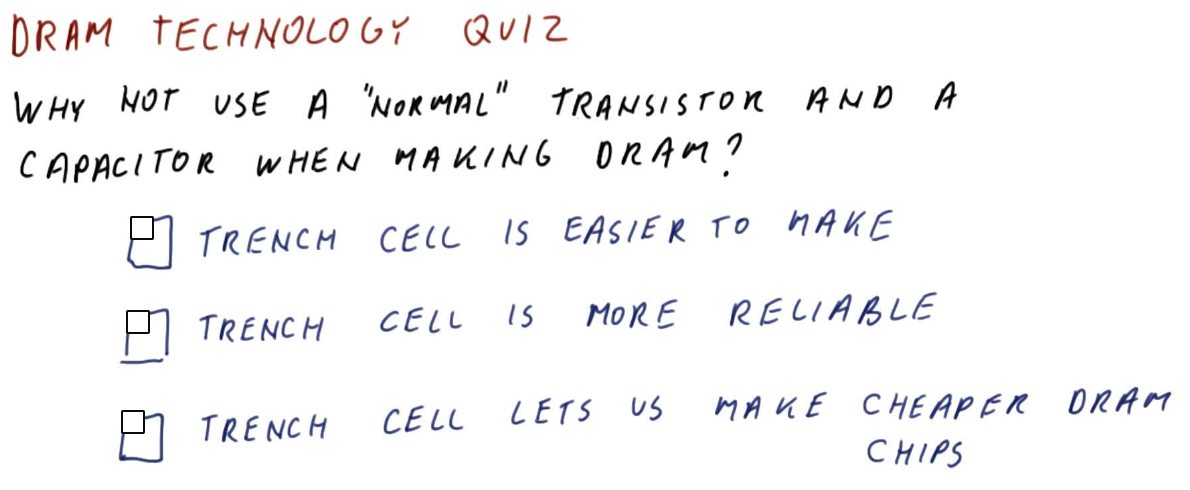 DRAM TECHNOLOGY QUIZ
WHY NOT USE A "NORMAL" TRANSISTOR AND A
CAPACITOR WHEN MAKING DRAM?
TRENCH CELL IS EASIER TO MAKE
TRENCH CELL IS MORE RELIABLE
TRENCH CELL LETS US MAKE CHEAPER DRAM
CHIPS